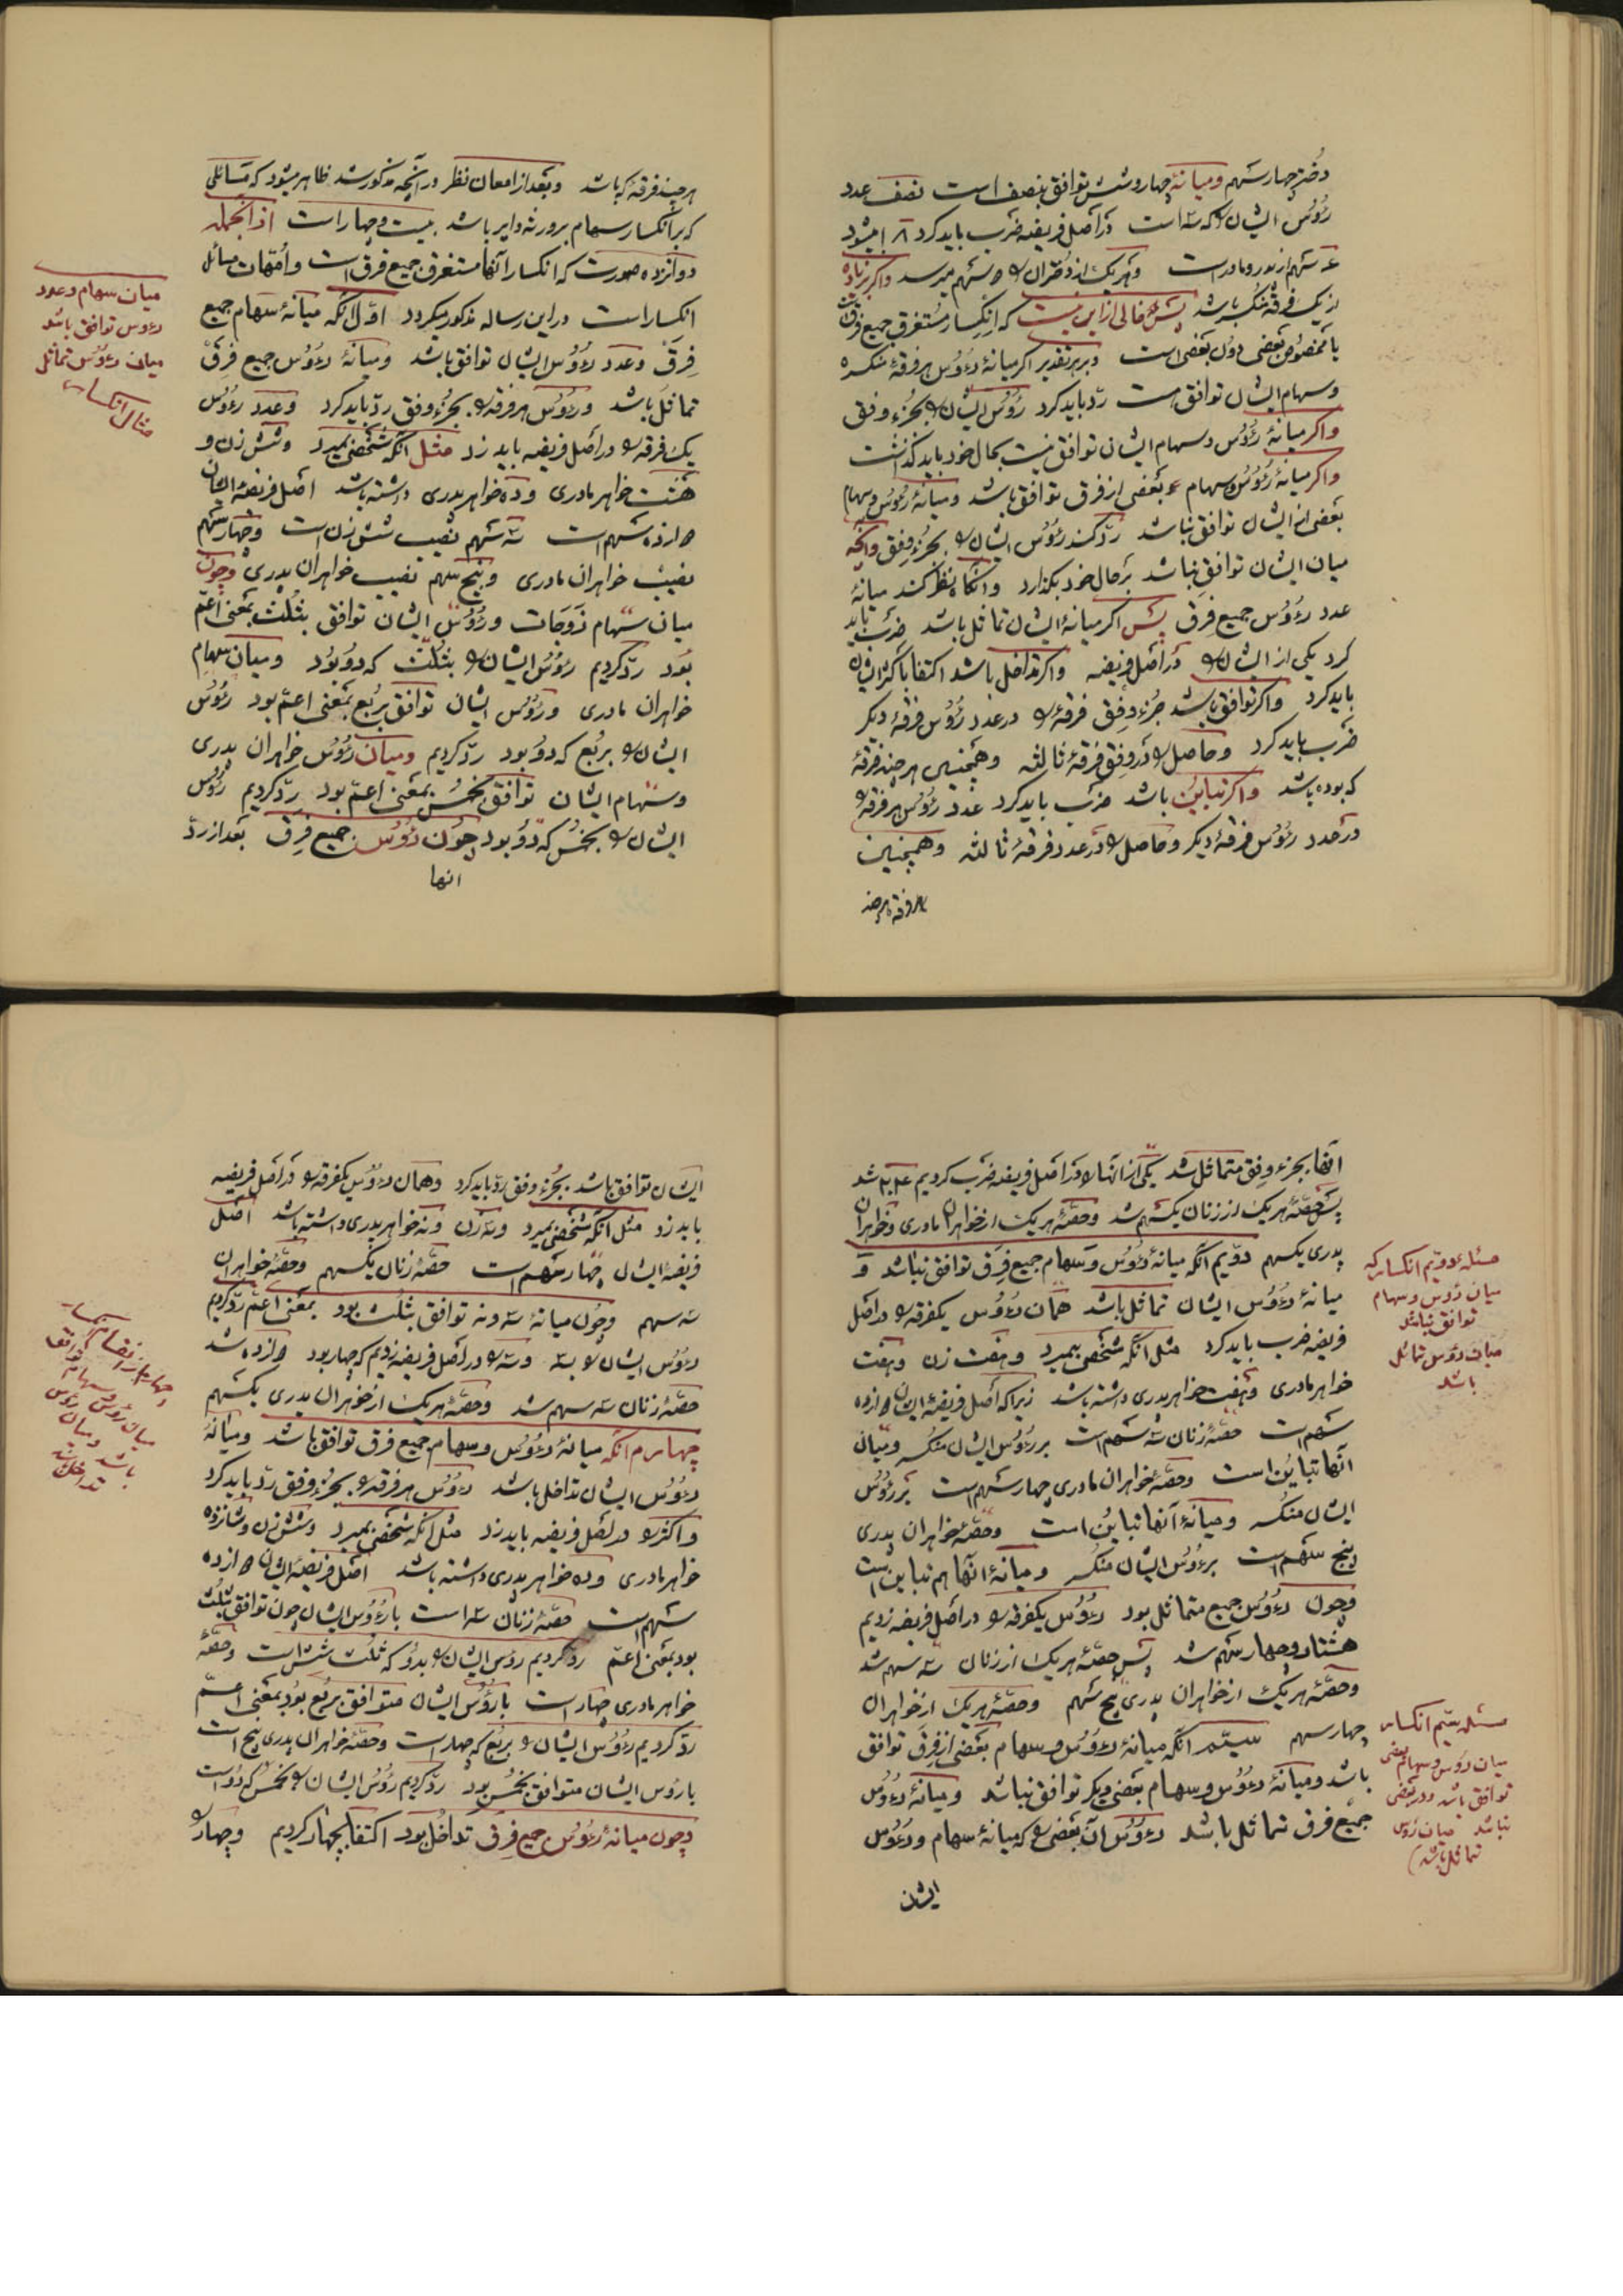 دختر چهار سهم و میانهٔ چهار و شش توافق بنصف است نصف عدد
رؤس ایشان را که سه است در اصل فریضه ضرب باید کرد ۱۸ میشود
سهم از پدر و مادر است و هر یک از دختران را سهم میرسد و اگر زیاده
از یک فرقه منکسر باشد پس خالی از این نیست که انکسار مستغرق جمیع فرق است
یا مخصوص بعضی دون بعضی است و بر هر تقدیر اگر میانهٔ رؤس هر فرقهٔ منکسره
و سهام ایشان توافق است ردّ باید کرد رؤس ایشان را بجزء وفق
و اگر میانهٔ رؤس و سهام ایشان توافق نیست بحال خود باید گذاشت
و اگر میانهٔ رؤس و سهام بعضی از فرق توافق باشد و میانهٔ رؤس و سهام
بعضی از ایشان توافق نباشد ردّ کنند رؤس ایشان را بجزء وفق و آنچه
میان ایشان توافق نباشد بر حال خود بگذارد و آنگاه نظر کند میانهٔ
عدد رءوس جمیع فرق پس اگر میانهٔ ایشان تماثل باشد ضرب باید
کرد یکی از ایشان را در اصل فریضه و اگر تداخل باشد اکتفا باکثر ایشان
باید کرد و اگر توافق باشد جزء وفق فرقه را در عدد رؤس فرقهٔ دیگر
ضرب باید کرد و حاصل را در وفق فرقهٔ ثالثه و همچنین هر چند فرقه
که بوده باشد و اگر تباین باشد ضرب باید کرد عدد رؤس هر فرقه را
در عدد رؤس فرقهٔ دیگر و حاصل را در عدد فرقهٔ ثالثه و همچنین
هر چند فرقه که باشد و بعد از امعان نظر در آنچه مذکور شد ظاهر میشود که مسائلی
که بر انکسار سهام بر ورثه دایر باشد بیست و چهار است از آنجمله
دوازده صورت که انکسار آنها مستغرق جمیع فرق است و امّهات مسائل
انکسار است در این رساله مذکور میگردد اوّل آنکه میانهٔ سهام جمیع
فرق و عدد رءوس ایشان توافق باشد و میانهٔ رءوس جمیع فرق
تماثل باشد و رءوس هر فرقه را بجزء وفق ردّ باید کرد و عدد رءوس
یک فرقه را در اصل فریضه باید زد مثل آنکه شخصی بمیرد و شش زن و
هشت خواهر مادری و ده خواهر پدری داشته باشد اصل فریضهٔ ایشان
دوازده سهم است سه سهم نصیب شش زن است و چهار سهم
نصیب خواهران مادری و پنج سهم نصیب خواهران پدری و چون
میان سهام زوجات و رؤس ایشان توافق بثلث بمعنی اعمّ
بود ردّ کردیم رؤس ایشان را بثلث که دو بود و میان سهام
خواهران مادری و رؤس ایشان توافق بربع بمعنی اعمّ بود رؤس
ایشان را بربع که دو بود ردّ کردیم و میان رؤس خواهران پدری
و سهام ایشان توافق بخمس بمعنی اعمّ بود ردّ کردیم رؤس
ایشان را بخمس که دو بود چون رؤس جمیع فرق بعد از ردّ
انها
میان سهام و عدد
رءوس توافق باشد
میان رءوس تماثل
مثال انکسار
انها بجزء وفق متماثل شد یکی از آنها را در اصل فریضه ضرب کردیم ۲۴ شد
پس حصّهٔ هر یک از زنان یکسهم شد و حصّهٔ هر یک از خواهران مادری و خواهران
پدری یکسهم دوّیم آنکه میانهٔ رءوس و سهام جمیع فرق توافق نباشد و
میانهٔ رءوس ایشان تماثل باشد همان رءوس یکفرقه را در اصل
فریضه ضرب باید کرد مثل آنکه شخصی بمیرد و هفت زن و هفت
خواهر مادری و هفت خواهر پدری داشته باشد زیرا که اصل فریضهٔ ایشان دوازده
سهم است حصّهٔ زنان سه سهم است بر رؤس ایشان منکسر و میان
آنها تباین است و حصّهٔ خواهران مادری چهار سهم است بر رؤس
ایشان منکسر و میانهٔ آنها تباین است و حصّهٔ خواهران پدری
پنج سهم است بر رءوس ایشان منکسر و میانهٔ آنها هم تباین است
و چون رءوس جمیع متماثل بود رءوس یکفرقه را در اصل فریضه زدیم
هشتاد و چهار سهم شد پس حصّهٔ هر یک از زنان سه سهم شد
و حصّهٔ هر یک از خواهران پدری پنج سهم و حصّهٔ هر یک از خواهران
چهار سهم سیّم آنکه میانهٔ رءوس و سهام بعضی از فرق توافق
باشد و میانهٔ رءوس و سهام بعضی دیگر توافق نباشد و میانهٔ رءوس
جمیع فرق تماثل باشد رءوس آن بعضی را که میانهٔ سهام و رءوس
ایشان
مسئله دوّیم انکسار که
میان رؤس و سهام
توافق نباشد
میان رؤس تماثل
باشد
مسئله سیّم انکسار
میان رؤس و سهام بعضی
توافق باشد و در بعضی
نباشد میان رؤس
تماثل باشد
ایشان توافق باشد بجزء وفق ردّ باید کرد و همان رءوس یکفرقه را در اصل فریضه
باید زد مثل آنکه شخصی بمیرد و سه زن و نه خواهر پدری داشته باشد اصل
فریضهٔ ایشان چهار سهم است حصّهٔ زنان یکسهم و حصّهٔ خواهران
سه سهم و چون میانهٔ سه و نه توافق بثلث بود بمعنی اعمّ ردّ کردیم
رءوس ایشان را بسه و سه را در اصل فریضه زدیم که چهار بود دوازده شد
حصّهٔ زنان سه سهم شد و حصّهٔ هر یک از خواهران پدری یکسهم
چهارم آنکه میانهٔ رءوس و سهام جمیع فرق توافق باشد و میانهٔ
رءوس ایشان تداخل باشد رءوس هر فرقه را بجزء وفق ردّ باید کرد
و اکثر را در اصل فریضه باید زد مثل آنکه شخصی بمیرد و شش زن و شانزده
خواهر مادری و ده خواهر پدری داشته باشد اصل فریضهٔ ایشان دوازده
سهم است حصّهٔ زنان سه است با رؤوس ایشان چون توافق بثلث
بود بمعنی اعمّ ردّ کردیم رؤس ایشان را بدو که ثلث شش است و حصّهٔ
خواهر مادری چهار است با رؤس ایشان متوافق بربع بود بمعنی اعمّ
ردّ کردیم رؤس ایشان را بربع که چهار است و حصّهٔ خواهران پدری پنج است
با رؤس ایشان متوافق بخمس بود ردّ کردیم رؤس ایشان را بخمس که دو است
و چون میانهٔ رءوس جمیع فرق تداخل بود اکتفا بچهار کردیم و چهار را
میان رؤس و سهام توافق
باشد و میان رؤس
تداخل باشد